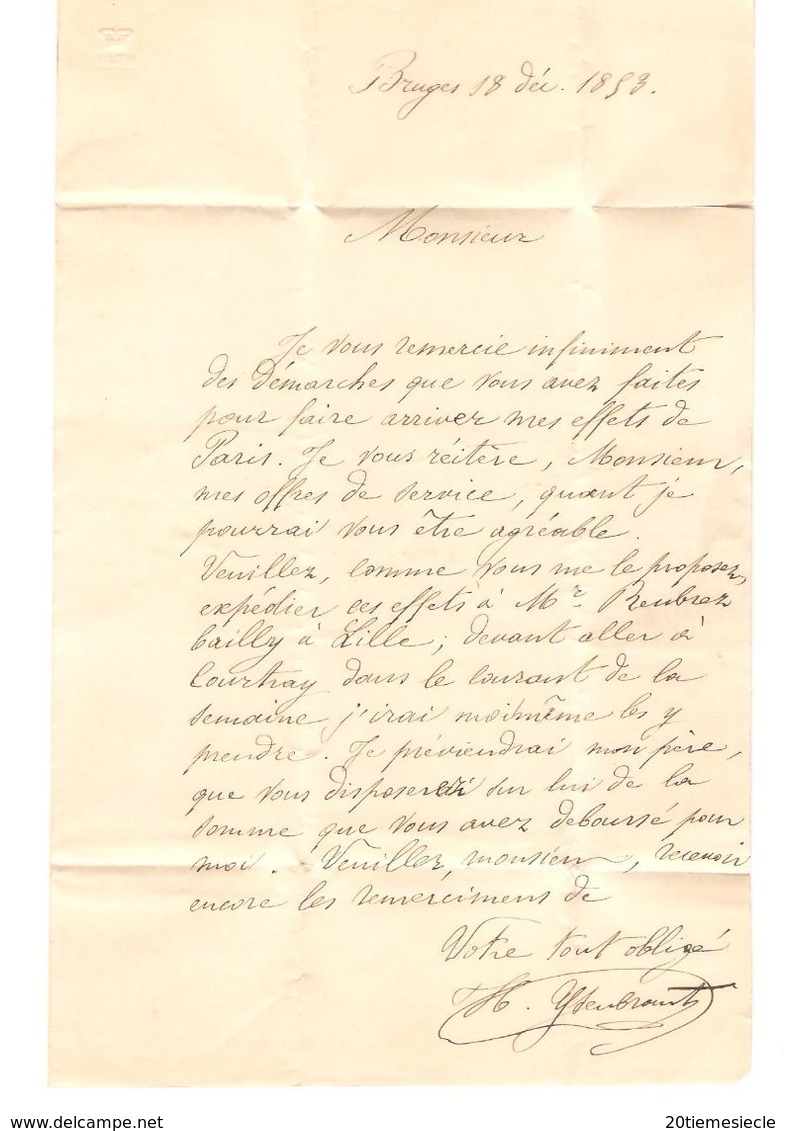 Bruges 18 déc. 1853.
Monsieur
Je vous remercie infiniment
des démarches que vous avez faites
pour faire arriver mes effets de
Paris. Je vous réitère, Monsieur,
mes offres de service, quant je
pourrai vous être agréable.
Veuillez, comme vous me le proposez,
expédier ces effets à Mr. Reubrez
bailly à Lille ; devant aller à
Courtray dans le courant de la
semaine j'irai moi même les y
prendre. Je préviendrai mon père,
que vous disposerez sur lui de la
somme que vous avez deboursé pour
moi. Veuillez, monsieur, recevoir
encore les remerciments de
Votre tout obligé
H. Ysenbrant
20tiemesiecle